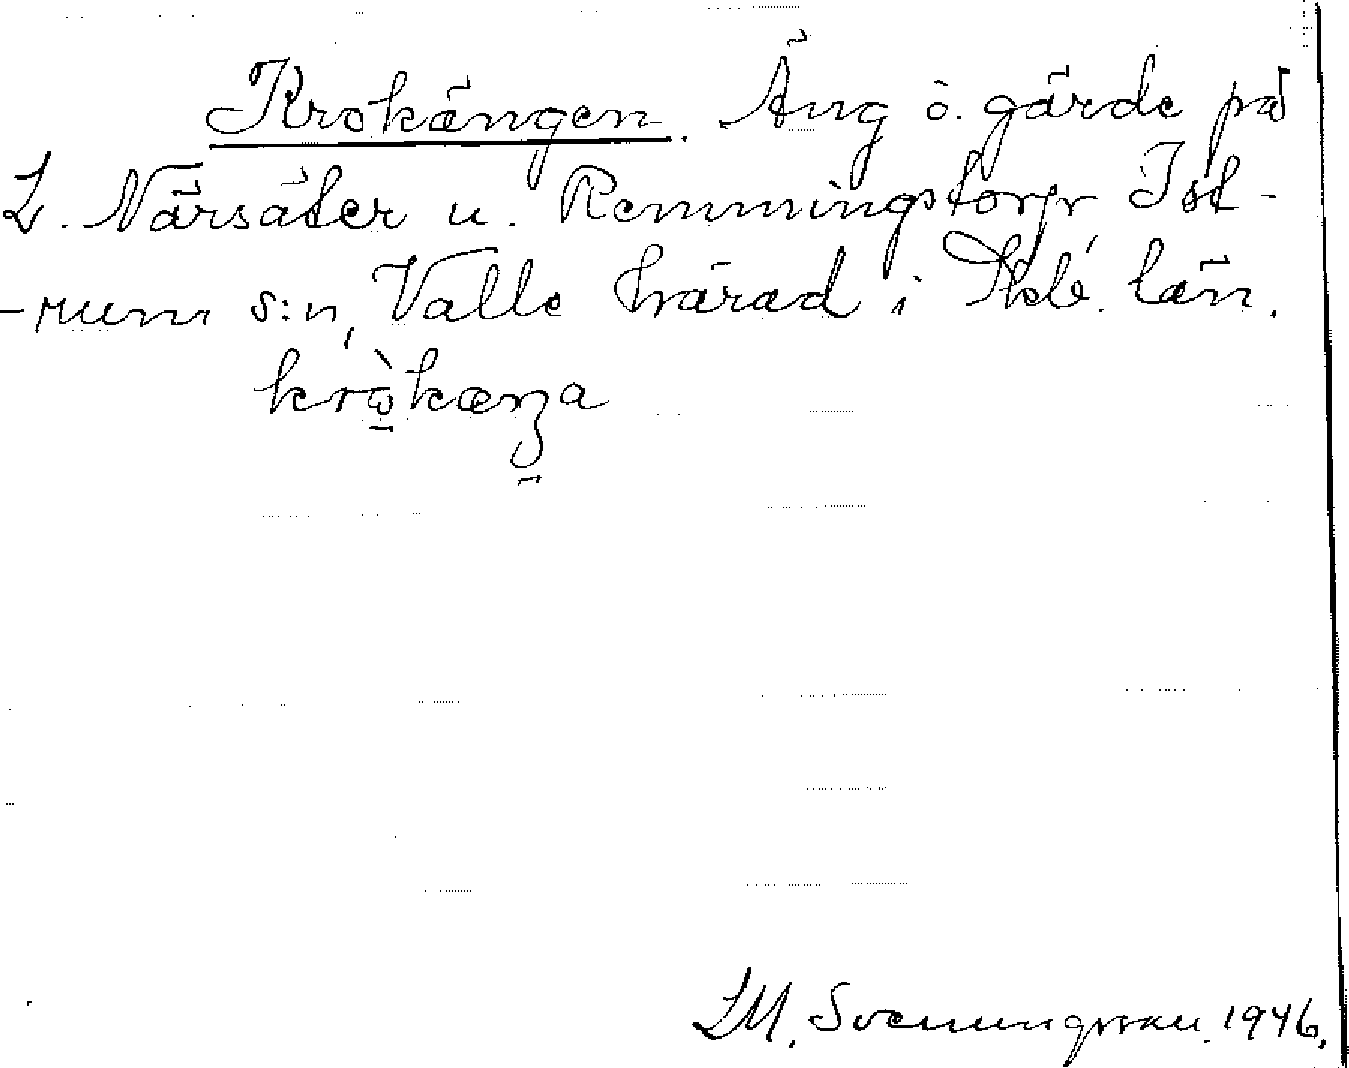 Krokängen. Äng o. gärde på
L. Närsäter u. Remmingstorp Ist-
-rum s:n, Valle härad i län.
kròkæŋa
LM. Svenungsson. 1946.